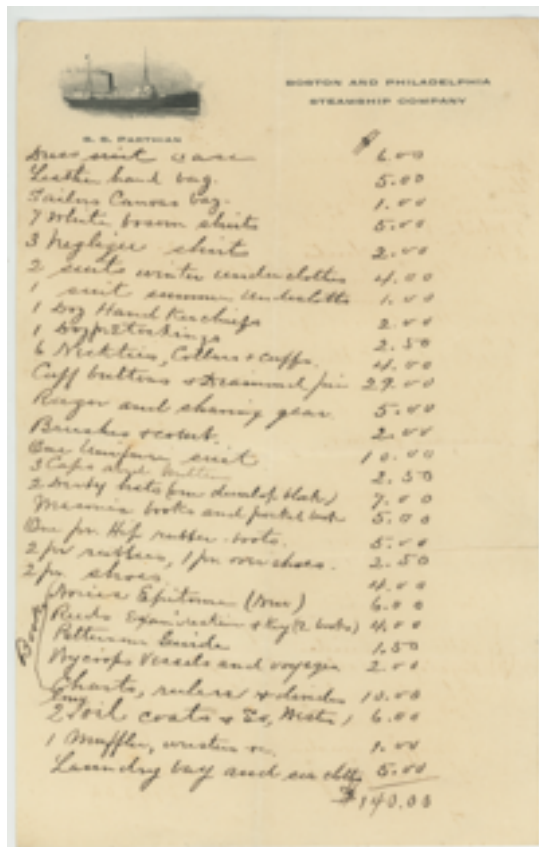 BOSTON AND PHILADELPHIA
STEAMSHIP COMPANY
S. S. PARTHIAN
Dress suit case $ 6.00
Leather hand bag. 5.00
Sailors Canvas bag. 1.00
7 White bosom shirts 5.00
3 Negligee shirts 2.00
2 suits winter underclothes 4.00
1 suit summer underclothes 1.00
1 Doz Hand Kerchiefs 2.00
1 Doz pr Stockings 2.50
6 Neckties, Collars + cuffs. 4.00
Cuff buttons + Diamond pin 29.00
Razor and shaving gear. 5.00
Brushes + comb. 2.00
One Uniform suit 10.00
3 Caps and 2.50
2 Derby hats (one dunlap black) 7.00
Masonic books and pocket book 5.00
One pr. Hip rubber boots. 5.00
2 pr rubbers, 1 pr. over shoes. 2.50
2 pr. shoes. 4.00
Books
Nories Epitome (New) 6.00
Reeds Examination + Key (2 books) 4.00
Pattersons Guide 1.50
Vessels and voyages 2.00
Charts, rulers + dividers 10.00
2 oil coats + So, Wester 6.00
1 Muffler, 1.00
Laundry bag and clothes 5.00
$140.00